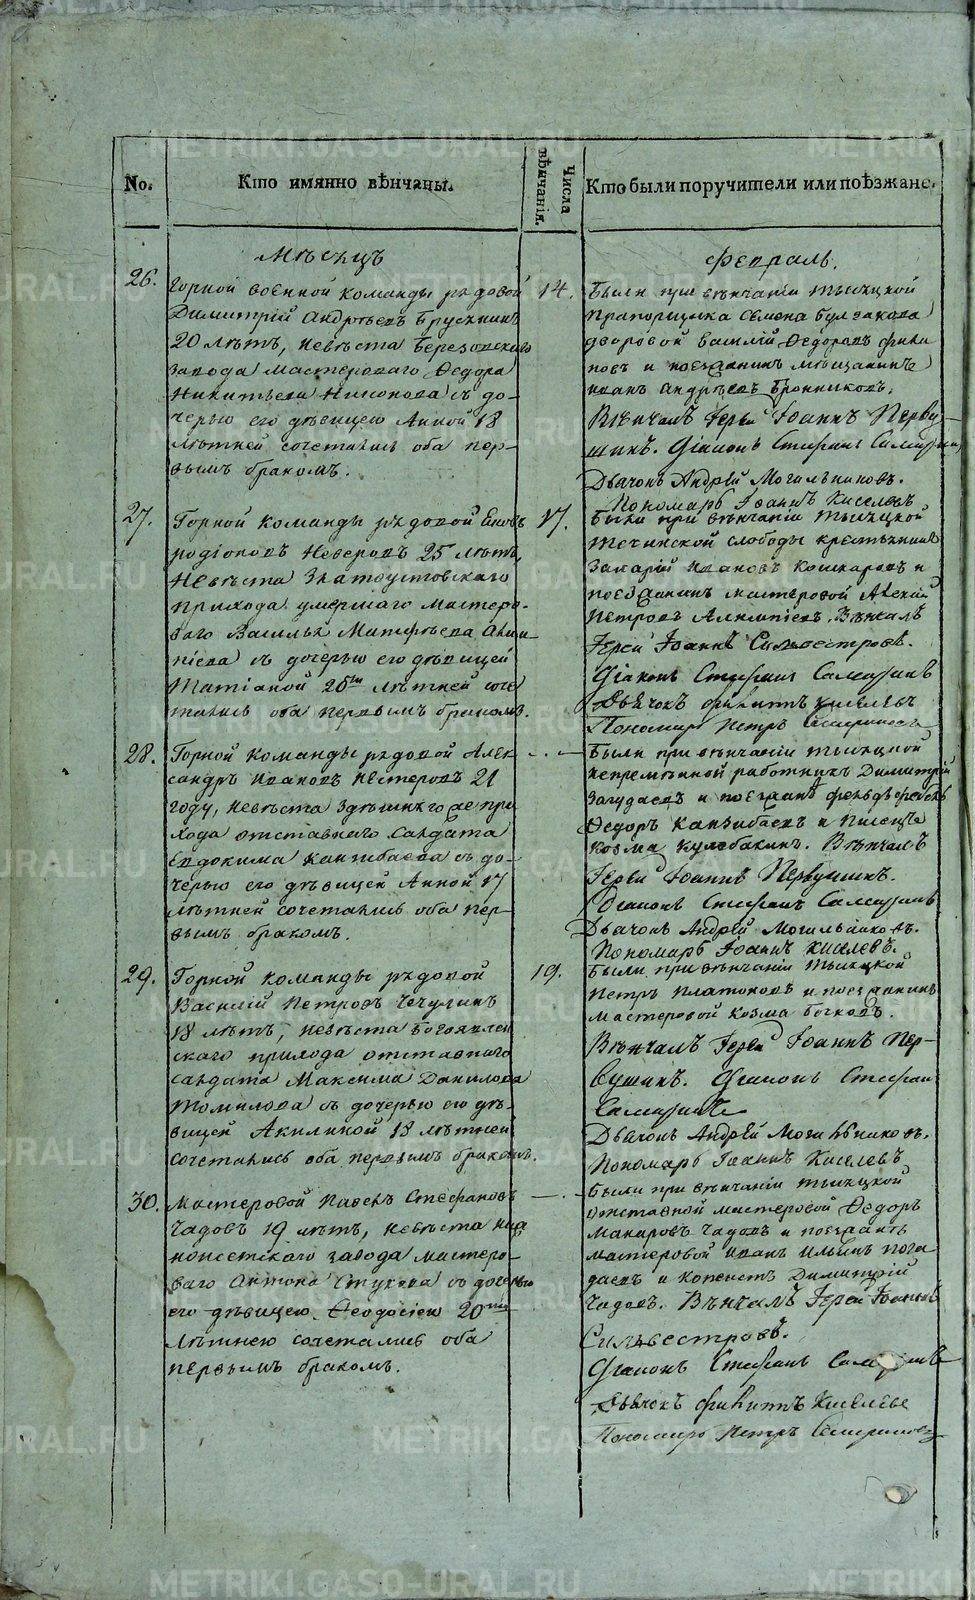 No.
Кто имянно вѣнчаны.
Числа вѣнчанія.
Кто были поручители или поѣзжане.
Мѣсяцъ
Февраль.
26.
Горной военной команды рядовой
Димитрій Андреевъ Брусницынъ
20 лѣтъ, невѣста Березовскаго
завода мастероваго Ѳедора
Никитьева съ до-
черью его дѣвицею Анной 18
лѣтней сочетались оба пер-
вымъ бракомъ.
14.
Были при вѣнчаніи тысяцкой
прапорщика Семена Булгакова
дворовой Василій Ѳедоровъ Филип
повъ и поезжанинъ мѣщанинъ
Иванъ Андреевъ Бронниковъ.
Вѣнчалъ Іерей Іоаннъ Перву-
шинъ. Діаконъ Стефанъ
Дьячокъ Андрей Могильниковъ.
Пономарь Іоаннъ Киселевъ
27.
Горной команды рядовой
Родіоновъ Неверовъ 25 лѣтъ,
Невѣста Златоустовскаго
прихода умершаго мастеро-
ваго Василья Матфѣева
съ дочерью его дѣвицей
Татіаной лѣтней соче
тались оба первымъ бракомъ.
17.
Были при вѣнчаніи тысяцкой
Течинской слободы крестьянинъ
Захарій Ивановъ и
поезжанинъ мастеровой Алексѣй
Петровъ. Вѣнчалъ
Іерей Іоаннъ Сильвестровъ.
Діаконъ Стефанъ
Дьячокъ Филиппъ Киселевъ
Пономарь Петръ
28.
Горной команды рядовой Алек
сандръ Ивановъ Нестеровъ 21
году, невѣста здѣшняго же при
хода отставнаго салдата
Евдокима Канзибаева съ до-
черью его дѣвицей Анной 17
лѣтней сочетались оба пер-
вымъ бракомъ.
— . —
Были при вѣнчаніи тысяцкой
непремѣнной работникъ Димитрій
Загудаевъ и поезжане
Ѳедоръ Канзибаевъ и писецъ
Козма Кулебакинъ. Вѣнчалъ
Іерей Іоаннъ Первушинъ.
Діаконъ Стефанъ
Дьячокъ Андрей Могильниковъ.
Пономарь Іоаннъ Киселевъ.
29.
Горной команды рядовой
Василій Петровъ Чечулинъ
18 лѣтъ, невѣста Богоявлен
скаго прихода отставнаго
салдата Максима Данилова
Томилова съ дочерью его дѣ-
вицей Акилиной 18 лѣтней
сочетались оба первымъ бракомъ.
19.
Были при вѣнчаніи тысяцкой
Петръ Платоновъ и поезжанинъ
мастеровой Козма Бочковъ.
Вѣнчалъ Іерей Іоаннъ Пер-
вушинъ. Діаконъ Стефанъ
Дьячокъ Андрей Могильниковъ.
Пономарь Іоаннъ Киселевъ
30.
Мастеровой Павелъ Стефановъ
Чадовъ 19 лѣтъ, невѣста Ниж
неисетскаго завода мастеро-
ваго Антона Стукова съ дочерью
его дѣвицею Ѳеодосіею 20
лѣтнею сочетались оба
первымъ бракомъ.
— . —
Были при вѣнчаніи тысяцкой
отставной мастеровой Ѳедоръ
Макаровъ Чадовъ и поезжанъ
мастеровой Иванъ Ильинъ Пога
даевъ и копеистъ Димитрій
Чадовъ. Вѣнчалъ Іерей Іоаннъ
Сильвестровъ.
Діаконъ Стефанъ
Дьячокъ Филиппъ Киселевъ
Пономарь Петръ
METRIKI.GASO-URAL.RU